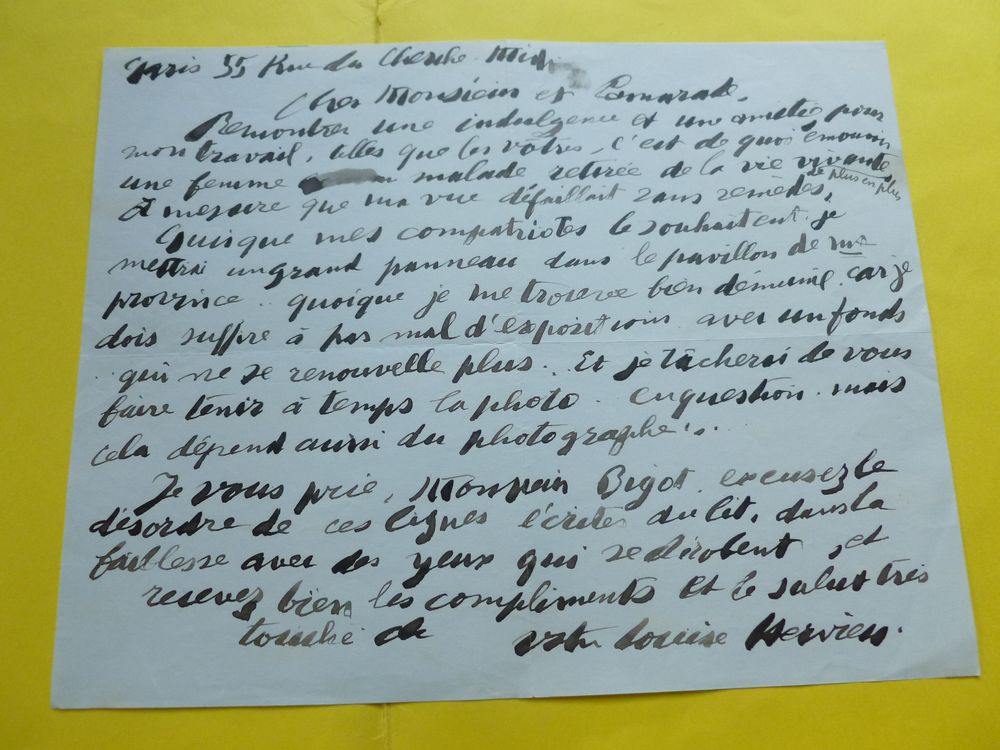 Paris 55 Rue du Cherche-Midi
Cher Monsieur et Camarade,
Remontrer une indulgence et une amitié pour
mon travail, telles que les vôtres, c'est de quoi émouvoir
une femme malade retirée de la vie vivante
de plus en plus
à mesure que ma vue défaillait sans remèdes,
Puisque mes compatriotes le souhaitent je
mettrai un grand panneau dans le pavillon de ma
province .. quoique je me trouve bien démunie car je
dois suffire à pas mal d'expositions avec un fonds
qui ne se renouvelle plus.. Et je tâcherai de vous
faire tenir à temps la photo en question. mais
cela dépend aussi du photographe..
Je vous prie, Monsieur Bigot excusez le
désordre de ces lignes écrites du lit, dans la
faiblesse avec des yeux qui se dérobent, et
recevez bien les compliments et le salut très
touché de votre Louise Hervieu.